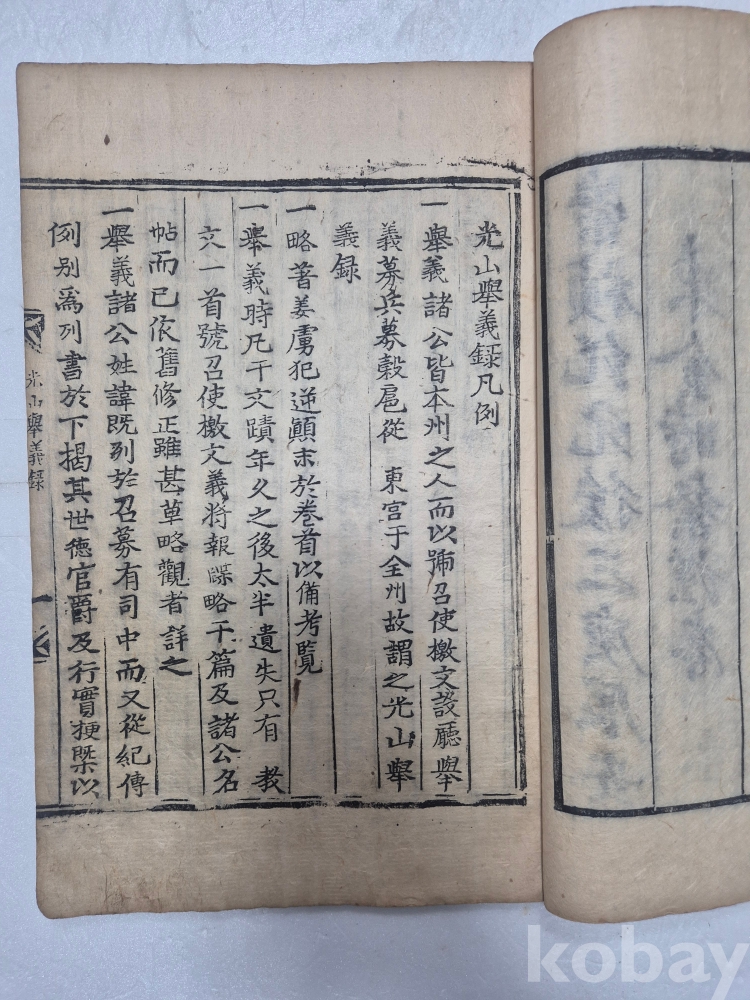 光山舉義録凡例
一舉義諸公皆本州之人而以號召使檄文設廳舉
義募兵募穀扈從 東宮于全州故謂之光山舉
義録
一略著姜虜犯逆顚末於巻首以備考覧
一舉義時凡干文蹟年久之後太半遺失只有 敎
文一首號召使檄文義將報牒略干篇及諸公名
帖而已依舊修正雖甚草略觀者詳之
一舉義諸公姓諱既列於召募有司中而又從紀傳
例别爲列書於下揭其世德官爵及行實梗槩以
光山舉義録
一
kobay